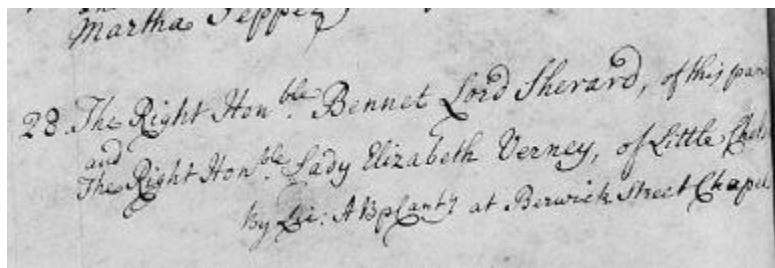 Martha Pepper
28. The Right Hon.ble Bennet Lord Sherard, of this par
and
The Right Hon.ble Lady Elizabeth Verney, of Little Chels
By Lic: ABp Cant.y at Berwick Street Chapel